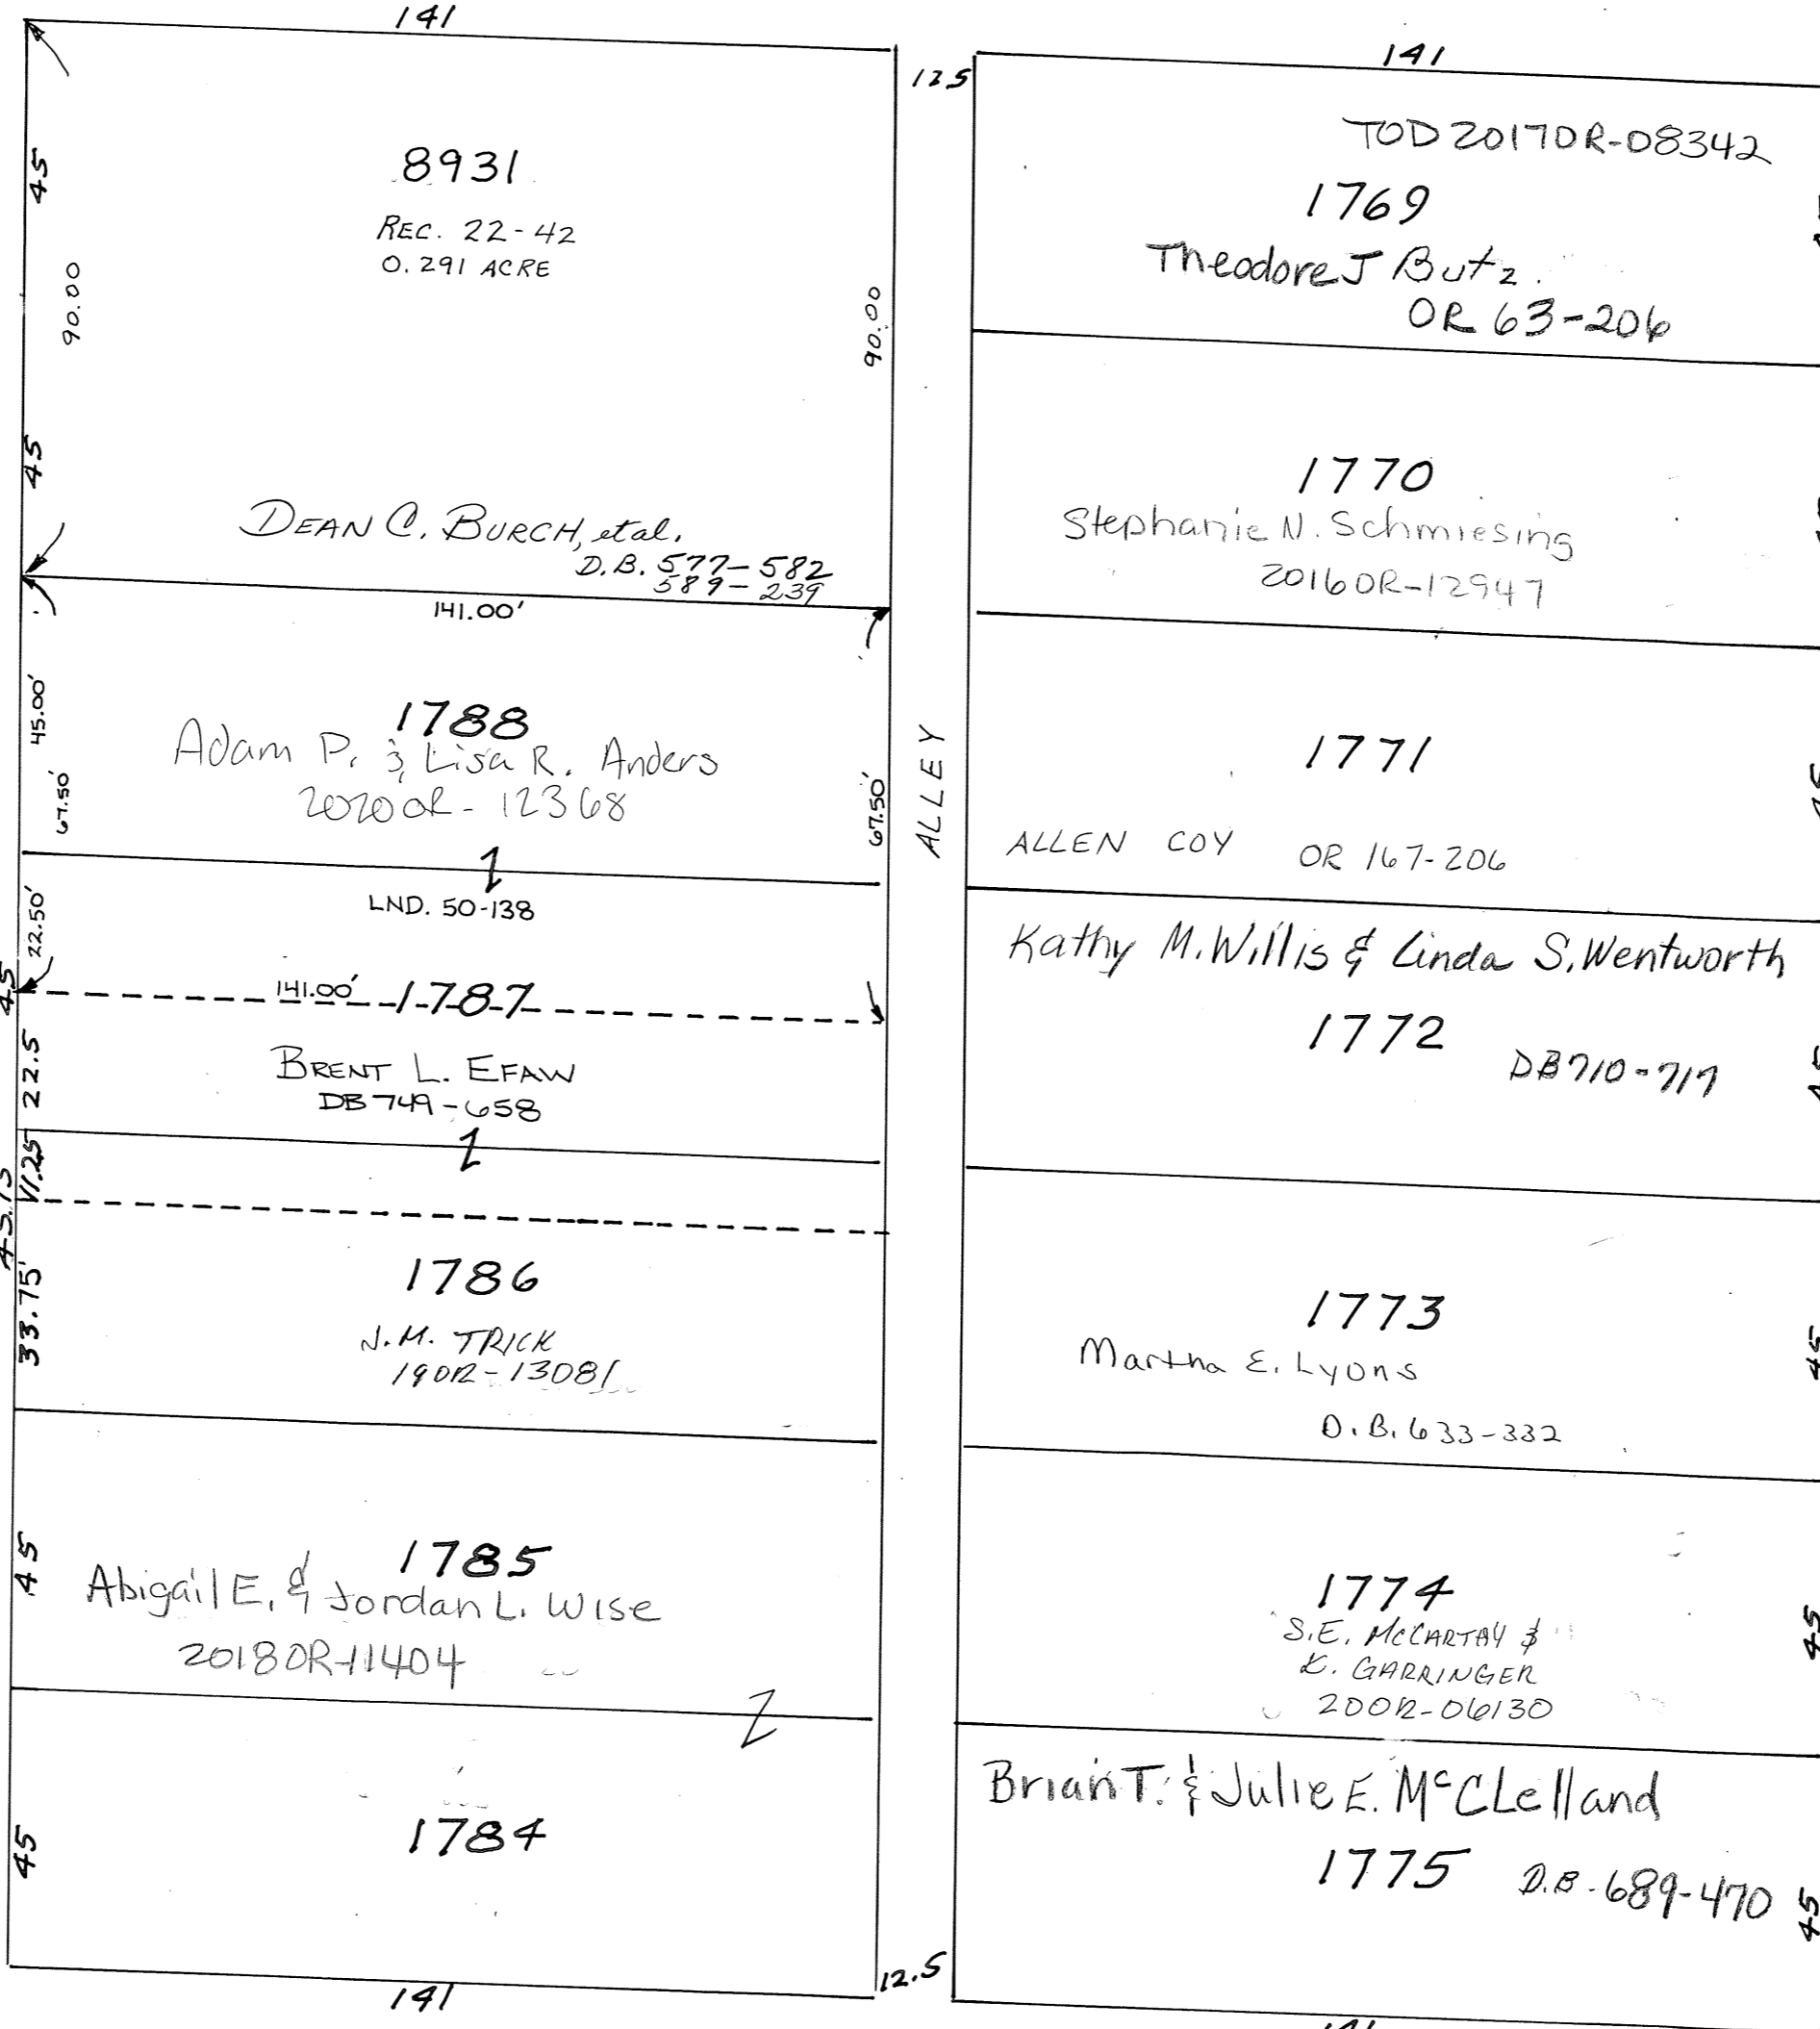 141
45
90.00
8931
REC. 22-42
0.291 ACRE
90.00
45
DEAN C. BURCH, et al.
D.B. 577-582
589-239
141.00'
45.00'
67.50'
1788
Adam P. & Lisa R. Anders
2020OR-12368
67.50'
LND. 50-138
22.50'
45
141.00' 1787
22.5
BRENT L. EFAW
DB 749-658
11.25
45.15
33.75'
1786
J.M. TRICK
19OR-13081
45
1785
Abigail E. & Jordan L. Wise
2018OR-11404
45
1784
141
12.5
ALLEY
12.5
141
TOD 2017OR-08342
1769
Theodore J Butz
OR 63-206
1770
Stephanie N. Schmiesing
2016OR-12947
1771
45
ALLEN COY OR 167-206
Kathy M. Willis & Linda S. Wentworth
1772
DB 710-717
45
1773
Martha E. Lyons
45
D.B. 633-332
1774
S.E. McCARTHY &
K. GARRINGER
20OR-06130
45
Brian T. & Julie E. McClelland
1775 D.B. 689-470
45
141